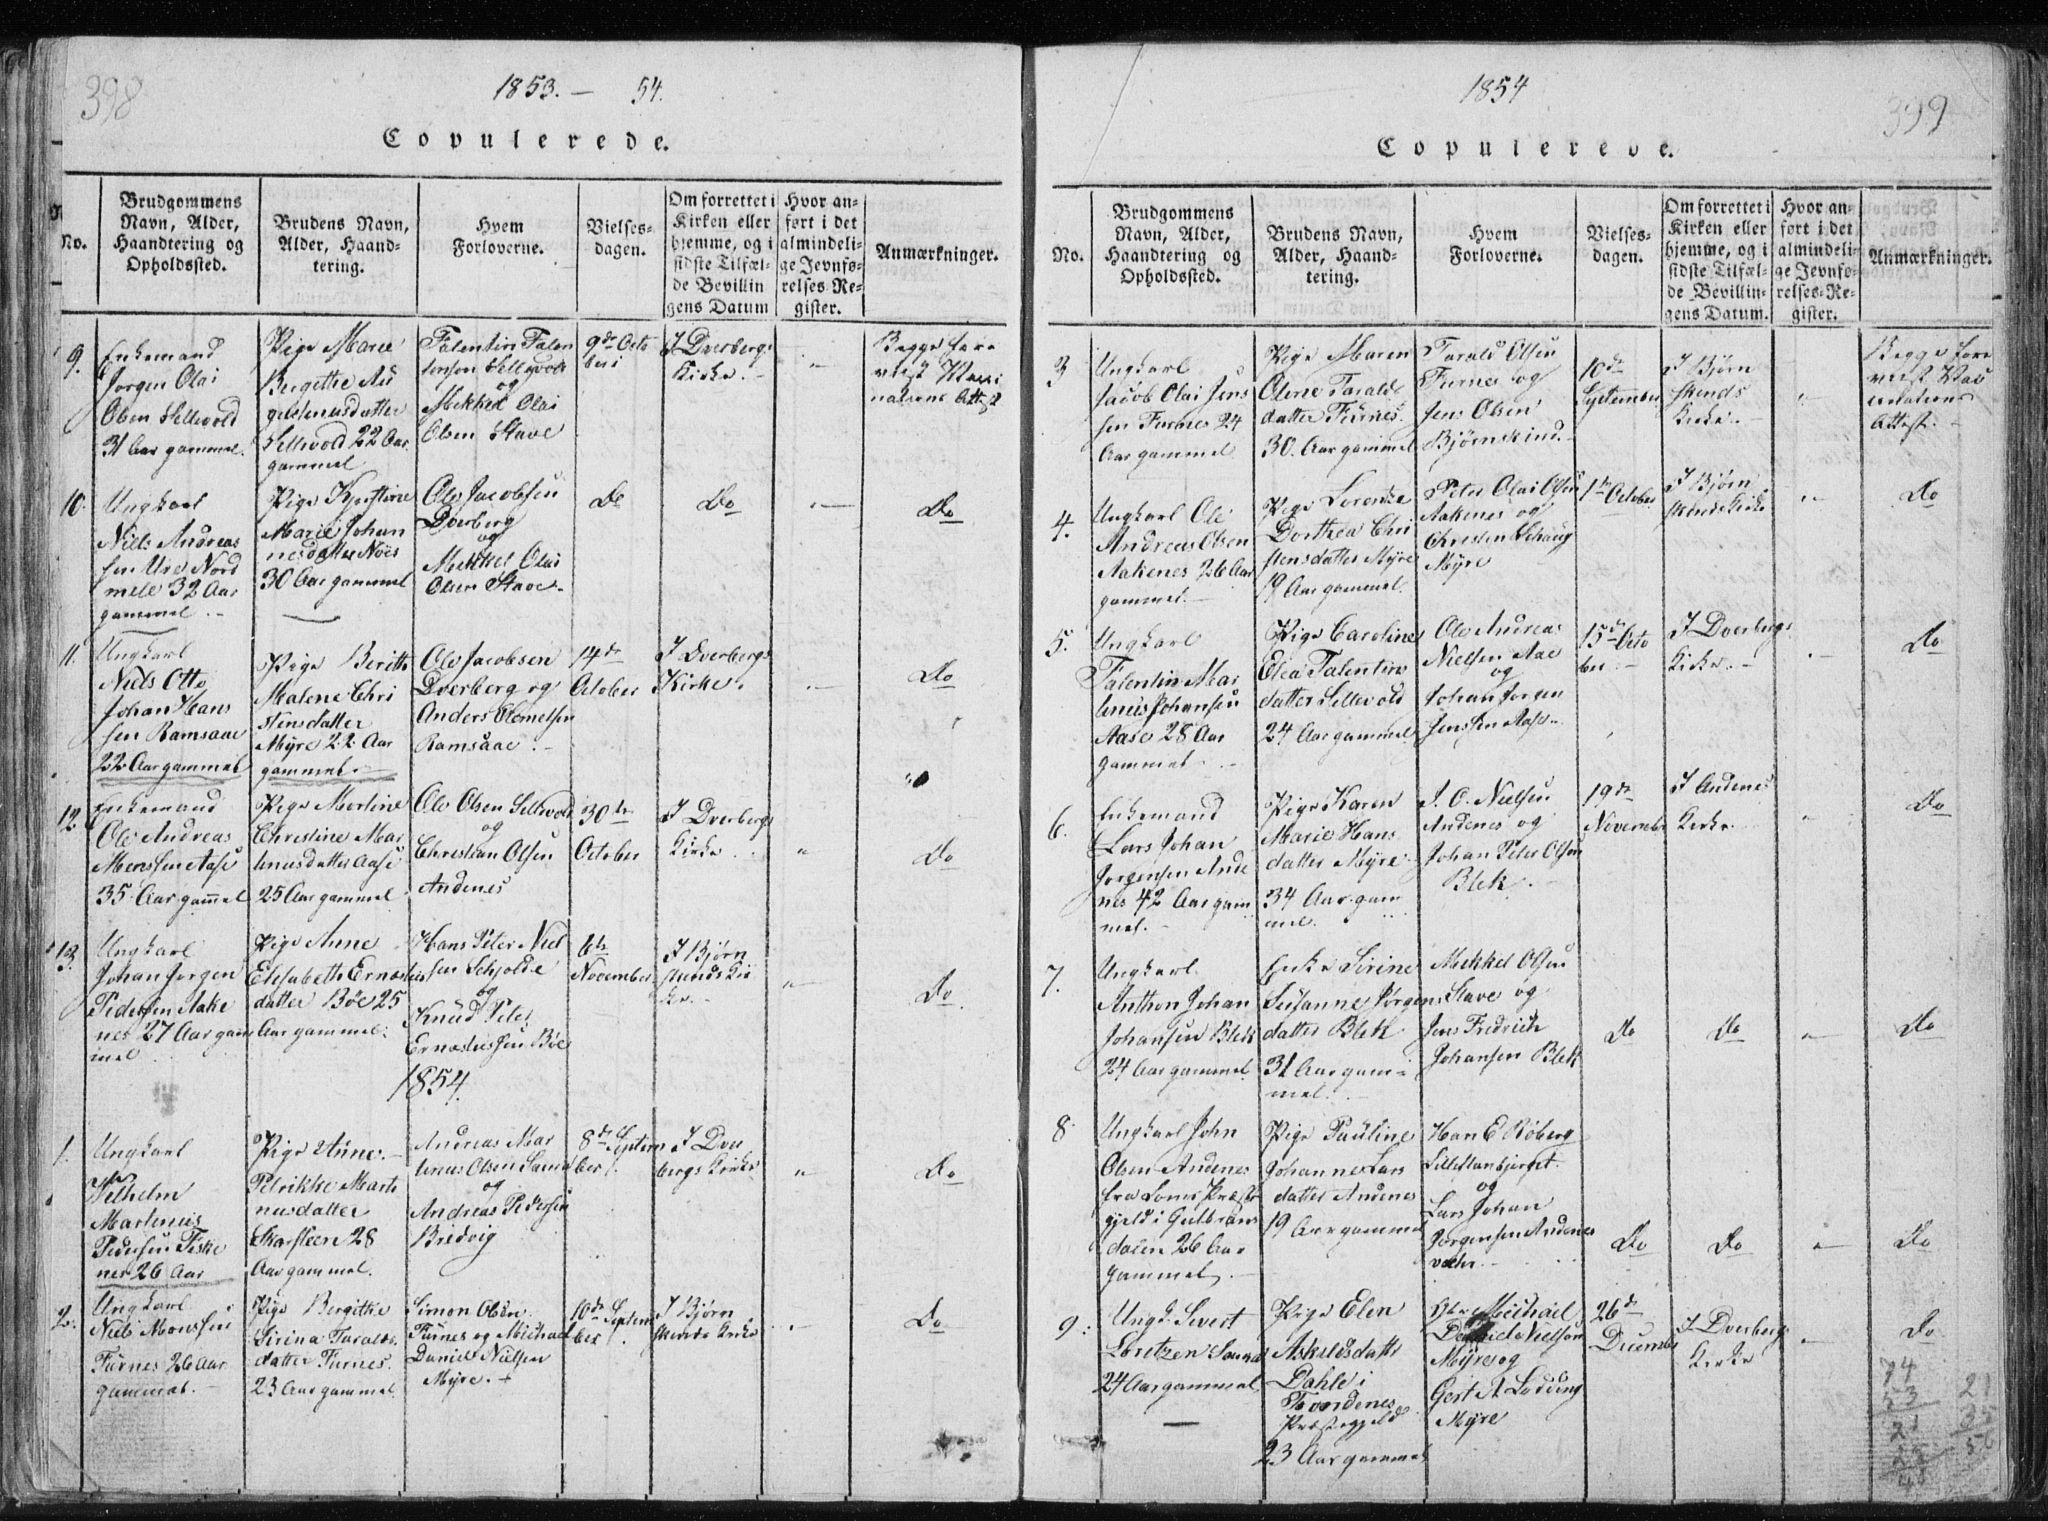 398
1853. — 54.
Copulerede.
No.
Brudgommens
Navn, Alder,
Haandtering og
Opholdssted.
Brudens Navn,
Alder, Haand-
tering.
Hvem
Forloverne.
Vielses-
dagen.
Om forrettet i
Kirken eller
hjemme, og i
sidste Tilfæl-
de Bevillin
gens Datum
Hvor an-
ført i det
almindeli-
ge Jevnfø-
relses-Re-
gister.
Anmærkninger.
9.
Enkemand
Jorgen Olai
Olsen Sellevold
31 Aar gammel.
Pige Marie
Bergithe Au
gustinusdatter
Sellevold 22 Aar
gammel
Falentin Falen
tinsen Sellevold
og
Mekkel Olai
Olsen Stave
9de Octo
ber
I Dverbergs
Kirke.
"
Begge fore
viist Vacci
nations Attest
10.
Ungkarl
Niels Andreas
sen Nord
mele 32 Aar
gammel.
Pige Kjerstine
Marie Johan
nesdatter Nøss
30 Aar gammel
Ole Jacobsen
Dverberg
og
Mekkel Olai
Olsen Stave
Do
Do
"
Do
11.
Ungkarl
Niels Otto
Johan Hans
sen Ramsaae
22 Aar gammel
Pige Berith
Malene Chri
stensdatter
Myre 22 Aar
gammel.
Ole Jacobsen
Dverberg og
Anders
Ramsaae.
14de
October
I Dverbergs
Kirke.
Do
12.
Enkemand
Ole Andreas
Monssen Aase
35 Aar gammel
Pige Martine
Christine Mar
tinusdatter Aase
25 Aar gammel
Ole Olsen Sellevold
og
Christian Olsen
Andenes
30te
October
I Dverbergs
Kirke.
"
Do
13.
Ungkarl
Johan Jorgen
Pedersen Aake
nes 27 Aar gam
mel
Pige Anne
Elisabeth Ernæstus
datter Bøe 25
Aar gammel.
Hans Peter Niel
sen Schjolde
og
Knud Peter
Ernæstussen Bøe
6te
November
I Bjørn
skinds Kir
ke.
"
Do
1854.
1.
Ungkarl
Vilhelm
Martinus
Pedersen Fiske
nes 26 Aar
Pige Anne
Petrikke Marti
nusdatter
Skarsteen 28
Aar gammel.
Andreas Mar
tinus Olsen
og
Andreas Pedersen
Bredvig
8de Septem
ber.
I Dver
bergs Kirke
"
Do
2.
Ungkarl
Niels Monssen
Furnes 26 Aar
gammel.
Pige Bergitha
Sirina Taralds
datter Furnes.
23 Aar gammel.
Simon Olsen
Furnes og Michael
Daniel Nielsen
Myre.
10de Septem
ber
I Bjørn
skinds Kirke
Do
1854
399
Copulerede.
No.
Brudgommens
Navn, Alder,
Haandtering og
Opholdssted.
Brudens Navn,
Alder, Haand-
tering.
Hvem
Forloverne.
Vielses-
dagen.
Om forrettet i
Kirken eller
hjemme, og i
sidste Tilfæl-
de Bevillin-
gens Datum.
Hvor an-
ført i det
almindeli-
ge Jevnfø-
relses-Re-
gister.
Anmærkninger.
3
Ungkarl
Jacob Olai Jens
sen Furnes 24
Aar gammel
Pige Maren
Olene Taralds
datter Furnes
30. Aar gammel
Tarald Olsen
Furnes og
Jens Olsen
Bjørnskind.
10de
September
I Bjørn
skinds
Kirke.
"
Begge fore
viist Vac
cinations
Attest.
4.
Ungkarl Ole
Andreas Olsen
Aakenes 26 Aar
gammel.
Pige Lorentze
Dorthea Chri
stensdatter Myre
19 Aar gammel.
Peter Olai Olsen
Aakenes og
Christen Schaug
Myre
1ste October
I Bjørn
skinds Kirke
"
Do
5.
Ungkarl
Falentin Mar
tinus Johansen
Aase 28 Aar
gammel.
Pige Caroline
Elea Falentin
datter Sellevold
24 Aar gammel
Ole Andreas
Nielsen Aae
og
Johan Jorgen
Jenssen Aase
15de Octo
ber.
I Dverbergs
Kirke.
Do
6.
Enkemand
Lars Johan
Jorgensen Ande
nes 42 Aar gam
mel.
Pige Karen
Marie Hans
datter Myre
34 Aar gam
mel.
J. O. Nielsen
Andenes og
Johan Peter Olsen
Blek.
19de
Novembr
I Andenes
Kirke.
"
Do
7.
Ungkarl
Anthon Johan
Johansen Blek
24 Aar gammel
Enke Sirine
Susanne Jørgens
datter Blek
31 Aar gam-
mel.
Mekkel Olsen
Stave og
Jens Fredrich
Johansen Blek
Do
Do
"
Do
8
Ungkarl John
Olsen Andenes
fra Loms Præste
gjeld i Gulbrans
dalen 26 Aar
gammel.
Pige Pauline
Johanne Lars
datter Andenes
19 Aar gammel
Hans E Roberg
og
Lars Johan
Jorgensen Andenes
Do
Do
"
Do
9:
Ungk. Sivert
Loretzen
24 Aar gammel
Pige Elen
Askildsdatt
Dahle i
Tvordenes
Præstegjeld
23 Aar gammel
Michael
Daniel Nielsen
Myre og
Gert A Lodding
Myre
26de
Decembr
I Dverbergs
Kirke
Do
74
53
21